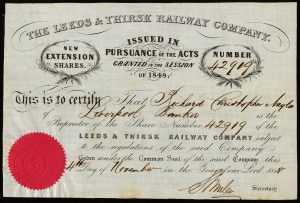 THE LEEDS & THIRSK RAILWAY COMPANY.
NEW EXTENSION SHARES.
ISSUED IN PURSUANCE OF THE ACTS GRANTED IN THE SESSION OF 1848.
NUMBER 42919
This is to certify That Richard Christopher Naylor
Liverpool Banker is the
Proprietor of the Share Number 42919 of the
LEEDS & THIRSK RAILWAY COMPANY subject
to the regulations of the said Company
Given under the Common Seal of the said Company this
Day of November in the Year of our Lord 1848
Secretary